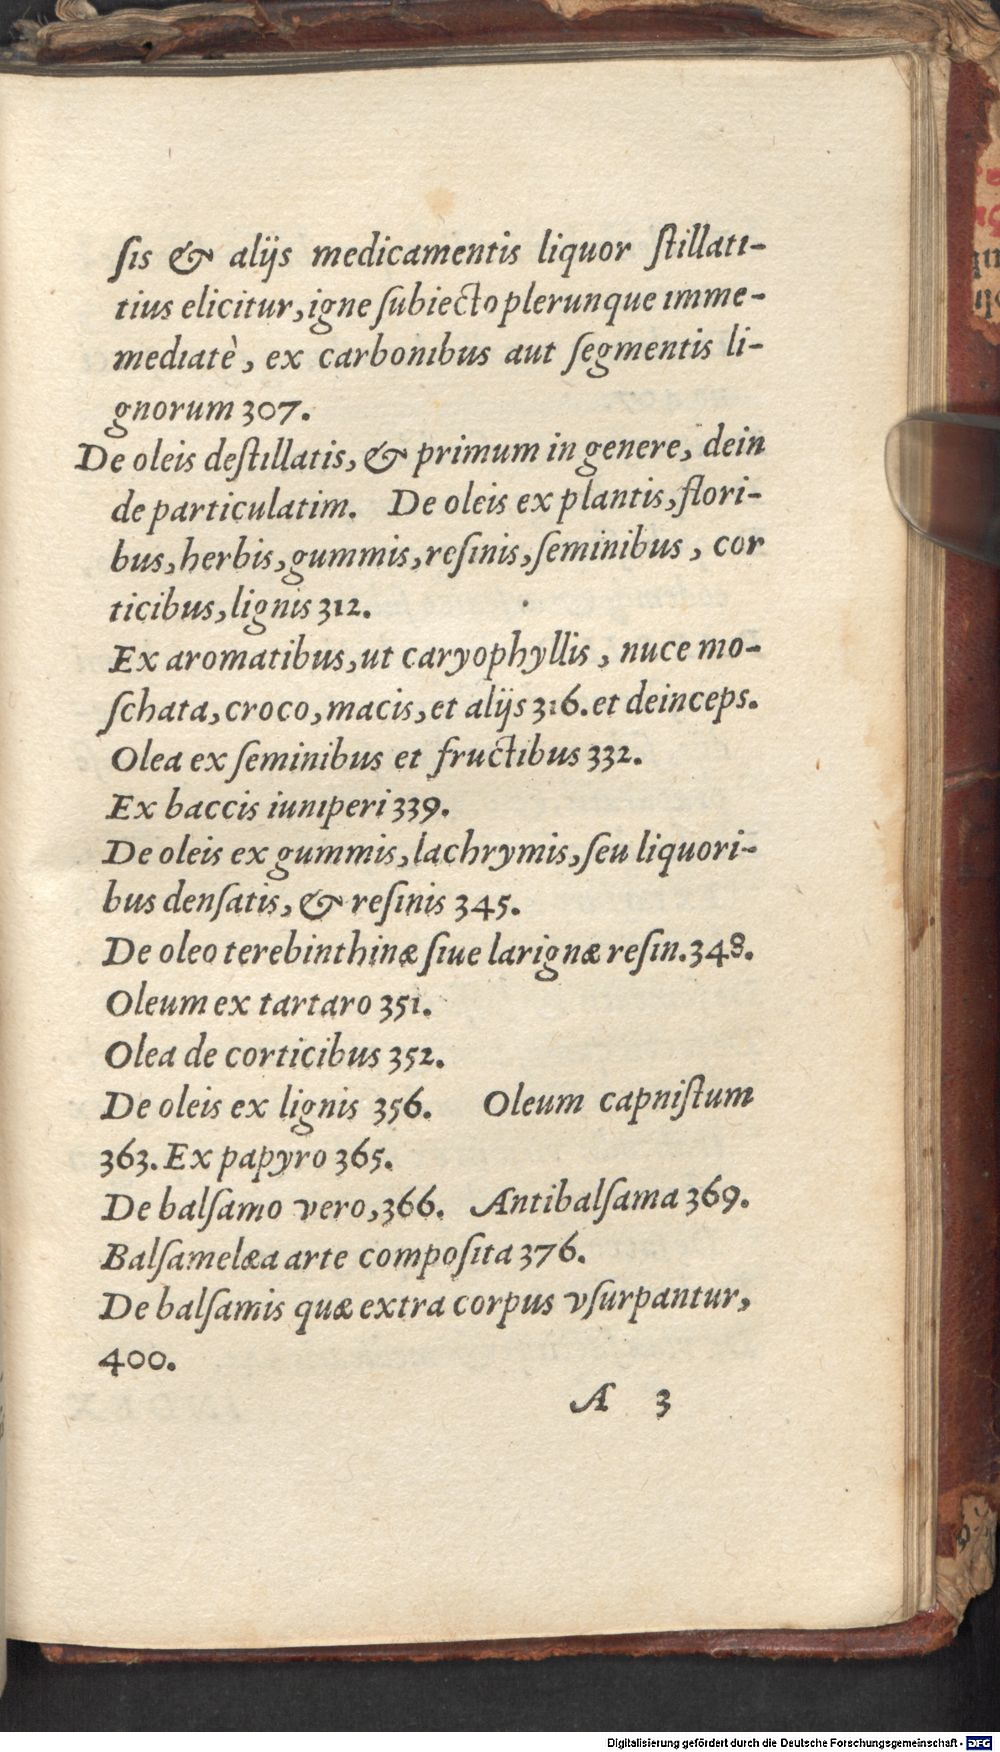 ſis & alijs medicamentis liquor ſtillati-
tius elicitur, igne ſubiecto plerunque imme-
mediatè, ex carbonibus aut ſegmentis li-
gnorum 307.
De oleis deſtillatis, & primum in genere, dein
de particulatim. De oleis ex plantis, flori-
bus, herbis, gummis, reſinis, ſeminibus, cor
ticibus, lignis 312.
Ex aromatibus, ut caryophyllis, nuce mo-
ſchata, croco, macis, et alijs 316. et deinceps.
Olea ex ſeminibus et fructibus 332.
Ex baccis iuniperi 339.
De oleis ex gummis, lachrymis, ſeu liquori-
bus denſatis, & reſinis 345.
De oleo terebinthinæ ſiue larignæ reſin. 348.
Oleum ex tartaro 351.
Olea de corticibus 352.
De oleis ex lignis 356. Oleum capniſtum
363. Ex papyro 365.
De balſamo vero, 366. Antibalſama 369.
Balſamelæa arte compoſita 376.
De balſamis quæ extra corpus vſurpantur,
400.
A 3
Digitalisierung gefördert durch die Deutsche Forschungsgemeinschaft - DFG